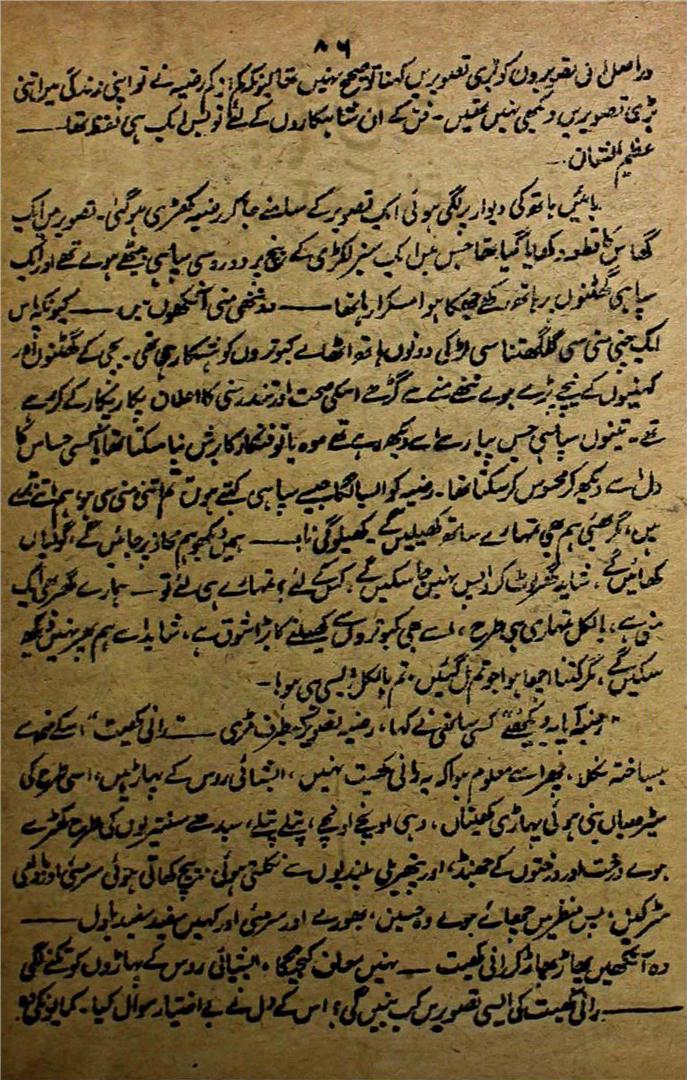 ۸۶
دراصل ان تصویروں کو بڑی تصویریں کہنا تو صحیح نہیں تھا کیونکہ رضیہ نے تو اپنی زندگی میں اتنی
بڑی تصویریں دیکھی نہیں تھیں۔ فن کے ان شاہکاروں کے لئے تو بس ایک ہی لفظ تھا ——
عظیم الشان۔
بائیں ہاتھ کی دیوار پر لگی ہوئی ایک تصویر کے سامنے جا کر رضیہ کھڑی ہو گئی۔ تصویر میں ایک
گھاس کا قطعہ دکھایا گیا تھا جس میں ایک سبز لکڑی کے بنچ پر دو روسی سپاہی بیٹھے ہوے تھے اور ایک
سپاہی گھٹنوں پر ہاتھ رکھے جھکا ہوا مسکرا رہا تھا —— دو ننھی منی آنکھوں میں —— کیونکہ پاس
ایک منی سی گلگھتنا سی لڑکی دونوں ہاتھ اٹھاے کبوتروں کو ہشکا رہی تھی۔ بچی کے گھٹنوں اور
کہنیوں کے نیچے پڑے ہوے ننھے منے سے گڑھے اسکی صحت اور تندرستی کا اعلان پکار پکار کے کر رہے
تھے۔ تینوں سپاہی جس پیار سے اسے دیکھ رہے تھے وہ یا تو فنکار کا برش بنا سکتا تھا یا کسی حساس کا
دل اسے دیکھ کر محسوس کر سکتا تھا۔ رضیہ کو ایسا لگا جیسے سپاہی کہتے ہوں تم اتنی منی سی ہو، ہم اتنے بڑے
ہیں، مگر بھئی ہم بھی تمہارے ساتھ کھیلیں گے۔ کھیلو گی نا؟ —— ہمیں دیکھو ہم محاذ پر جائیں گے، گولیاں
کھائیں گے۔ شاید گھر لوٹ کر واپس نہیں جا سکیں گے، کس کے لئے؟ تمہارے ہی لئے تو — ہمارے گھر بھی ایک
منی ہے، بالکل تمہاری ہی طرح، اسے بھی کبوتروں سے کھیلنے کا بڑا شوق ہے، شاید اسے ہم پھر نہیں دیکھ
سکیں گے، مگر کتنا اچھا ہوا جو تم مل گئیں، تم بالکل ویسی ہی ہو!۔
"رضیہ آپا یہ دیکھئے" کسی ساتھی نے کہا، رضیہ تصویر کی طرف مڑی —— "رانی کھیت" اسکے منہ سے
بیساختہ نکلا، پھر اسے معلوم ہوا کہ یہ رانی کھیت نہیں، ایشیائی روس کے پہاڑ ہیں، اسی طرح کی
سیڑھیاں بنی ہوئی پہاڑی کھیتیاں، وہی اونچے اونچے، پتلے پتلے، سیدھے سنتریوں کی طرح کھڑے
ہوے درخت اور درختوں کے جھنڈ، اور پتھریلی بلندیوں سے نکلتی ہوئی پیچ کھاتی ہوئی سرمئی اور بادامی
سڑکیں، پس منظر میں چھائے ہوے وہ حسین، بھورے اور سرمئی اور کہیں سفید سفید بادل ——
وہ آنکھیں پھاڑ پھاڑ کر رانی کھیت — نہیں معاف کیجیگا، ایشیائی روس کے پہاڑوں کو تکنے لگی
—— رانی کھیت کی ایسی تصویریں کب بنیں گی؟ اس کے دل نے بے اختیار سوال کیا۔ کمایوں کی